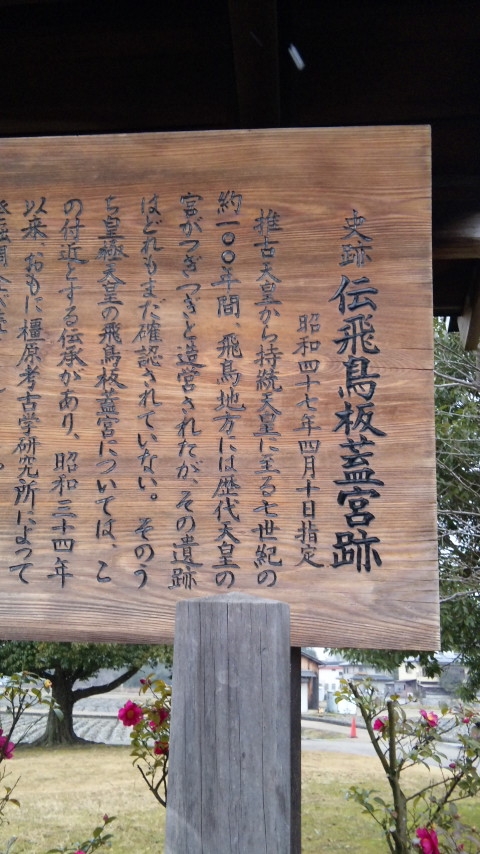 史跡 伝飛鳥板蓋宮跡
昭和四十七年四月十日指定
推古天皇から持統天皇に至る七世紀の
約一〇〇年間、飛鳥地方には歴代天皇の
宮がつぎつぎと造営されたが、その遺跡
はどれもまだ確認されていない。そのう
ち皇極天皇の飛鳥板蓋宮については、こ
の付近とする伝承があり、昭和三十四年
以来、おもに橿原考古学研究所によって